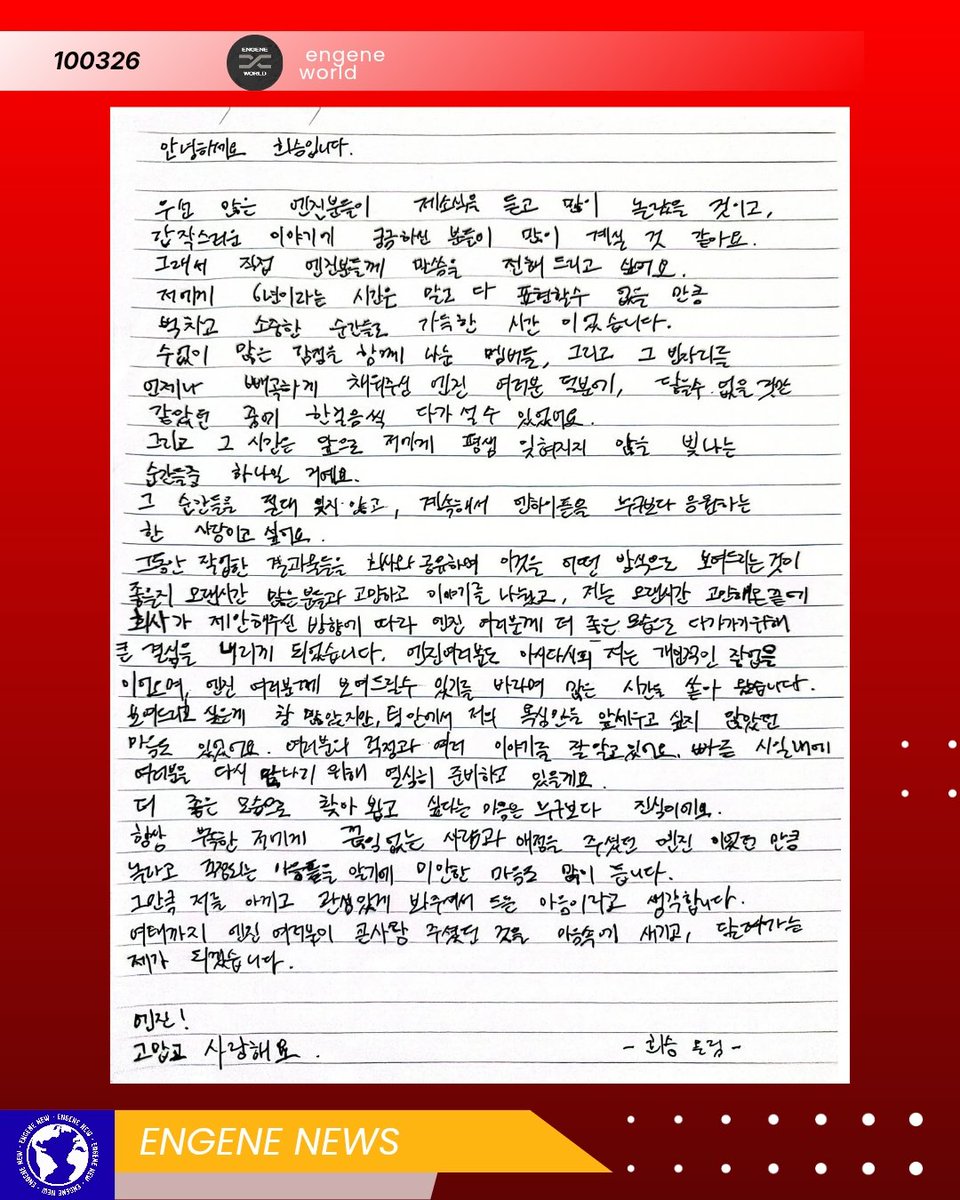 100326
ENGENE
WORLD
engene
world
안녕하세요 희승입니다.
우선 많은 엔진분들이 제소식을 듣고 많이 놀랐을 것이고,
갑작스러운 이야기에 궁금하신 분들이 많이 계실 것 같아요.
그래서 직접 엔진분들께 말씀을 전해 드리고 싶어요.
저에게 6년이라는 시간은 말로 다 표현할수 없을 만큼
벅차고 소중한 순간들로 가득한 시간 이었습니다.
수없이 많은 감정을 함께 나눈 멤버들, 그리고 그 빈자리를
언제나 빼곡하게 채워주신 엔진 여러분 덕분에, 닿을수 없을 것만
같았던 꿈에 한걸음씩 다가 설 수 있었어요.
그리고 그 시간은 앞으로 저에게 평생 잊혀지지 않을 빛나는
순간들중 하나일 거예요.
그 순간들을 절대 잊지 않고, 계속해서 엔하이픈을 누구보다 응원하는
한 사람이고 싶어요.
그동안 작업한 결과물들을 회사와 공유하며 이것을 어떤 방식으로 보여드리는 것이
좋을지 오랜시간 많은 분들과 고민하고 이야기를 나눴고, 저는 오랜시간 고민해온 끝에
회사가 제안해주신 방향에 따라 엔진 여러분께 더 좋은 모습으로 다가가기위해
큰 결심을 내리게 되었습니다. 엔진여러분도 아시다시피 저는 개인적인 작업을
이어오며, 엔진 여러분께 보여드릴수 있기를 바라며 많은 시간을 쏟아 왔습니다.
보여드리고 싶은게 참 많았지만, 팀 안에서 저의 욕심만을 앞세우고 싶지 않았던
마음도 있었어요. 여러분의 걱정과 여러 이야기를 잘 알고 있어요. 빠른 시일내에
여러분을 다시 만나기 위해 열심히 준비하고 있을게요.
더 좋은 모습으로 찾아 뵙고 싶다는 마음은 누구보다 진심이에요.
항상 부족한 저에게 끊임없는 사랑과 애정을 주셨던 엔진 이었던 만큼
놀라고 걱정되는 마음들을 알기에 미안한 마음도 많이 듭니다.
그만큼 저를 아끼고 관심있게 봐주셔서 드는 마음이라고 생각합니다.
여태까지 엔진 여러분이 큰사랑 주셨던 것을 마음속에 새기고, 달려가는
제가 되겠습니다.
엔진!
고맙고 사랑해요.
- 희승 드림 -
ENGENE NEWS